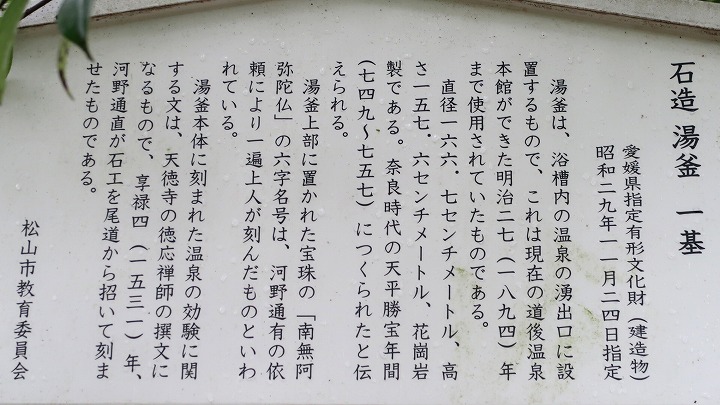 石造 湯釜 一基
愛媛県指定有形文化財（建造物）
昭和二九年一一月二四日指定
湯釜は、浴槽内の温泉の湧出口に設
置するもので、これは現在の道後温泉
本館ができた明治二七（一八九四）年
まで使用されていたものである。
直径一六六．七センチメートル、高
さ一五七．六センチメートル、花崗岩
製である。奈良時代の天平勝宝年間
（七四九～七五七）につくられたと伝
えられる。
湯釜上部に置かれた宝珠の「南無阿
弥陀仏」の六字名号は、河野通有の依
頼により一遍上人が刻んだものといわ
れている。
湯釜本体に刻まれた温泉の効験に関
する文は、天徳寺の徳応禅師の撰文に
なるもので、享禄四（一五三一）年、
河野通直が石工を尾道から招いて刻ま
せたものである。
松山市教育委員会